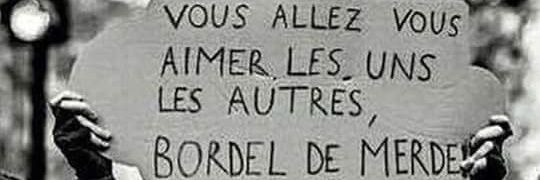 VOUS ALLEZ VOUS
AIMER LES UNS
LES AUTRES,
BORDEL DE MERDE